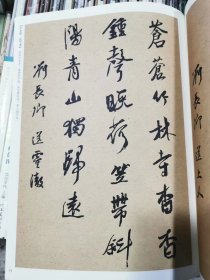 蒼蒼竹林寺杳杳
鐘聲晚荷笠帶斜
陽青山獨歸遠
劉長卿 送靈澈